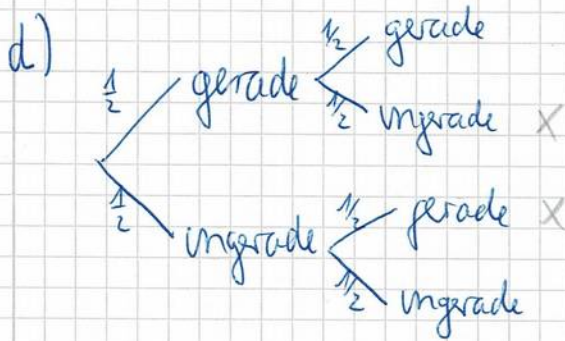 d)
1/2 gerade 1/2 gerade
1/2 ungerade X
1/2 ungerade 1/2 gerade X
1/2 ungerade